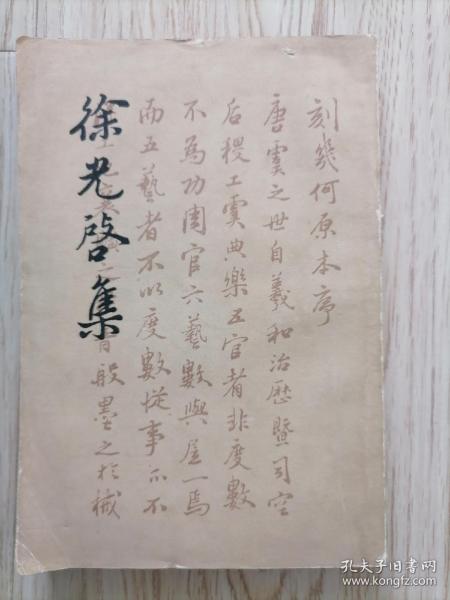 刻幾何原本序
唐虞之世自羲和治歷暨司空
后稷工虞典樂五官者非度數
不為功周官六藝數與居一焉
而五藝者不以度數從事亦不
音般墨之於械
徐光啓集
孔夫子旧书网
www.kongfz.com